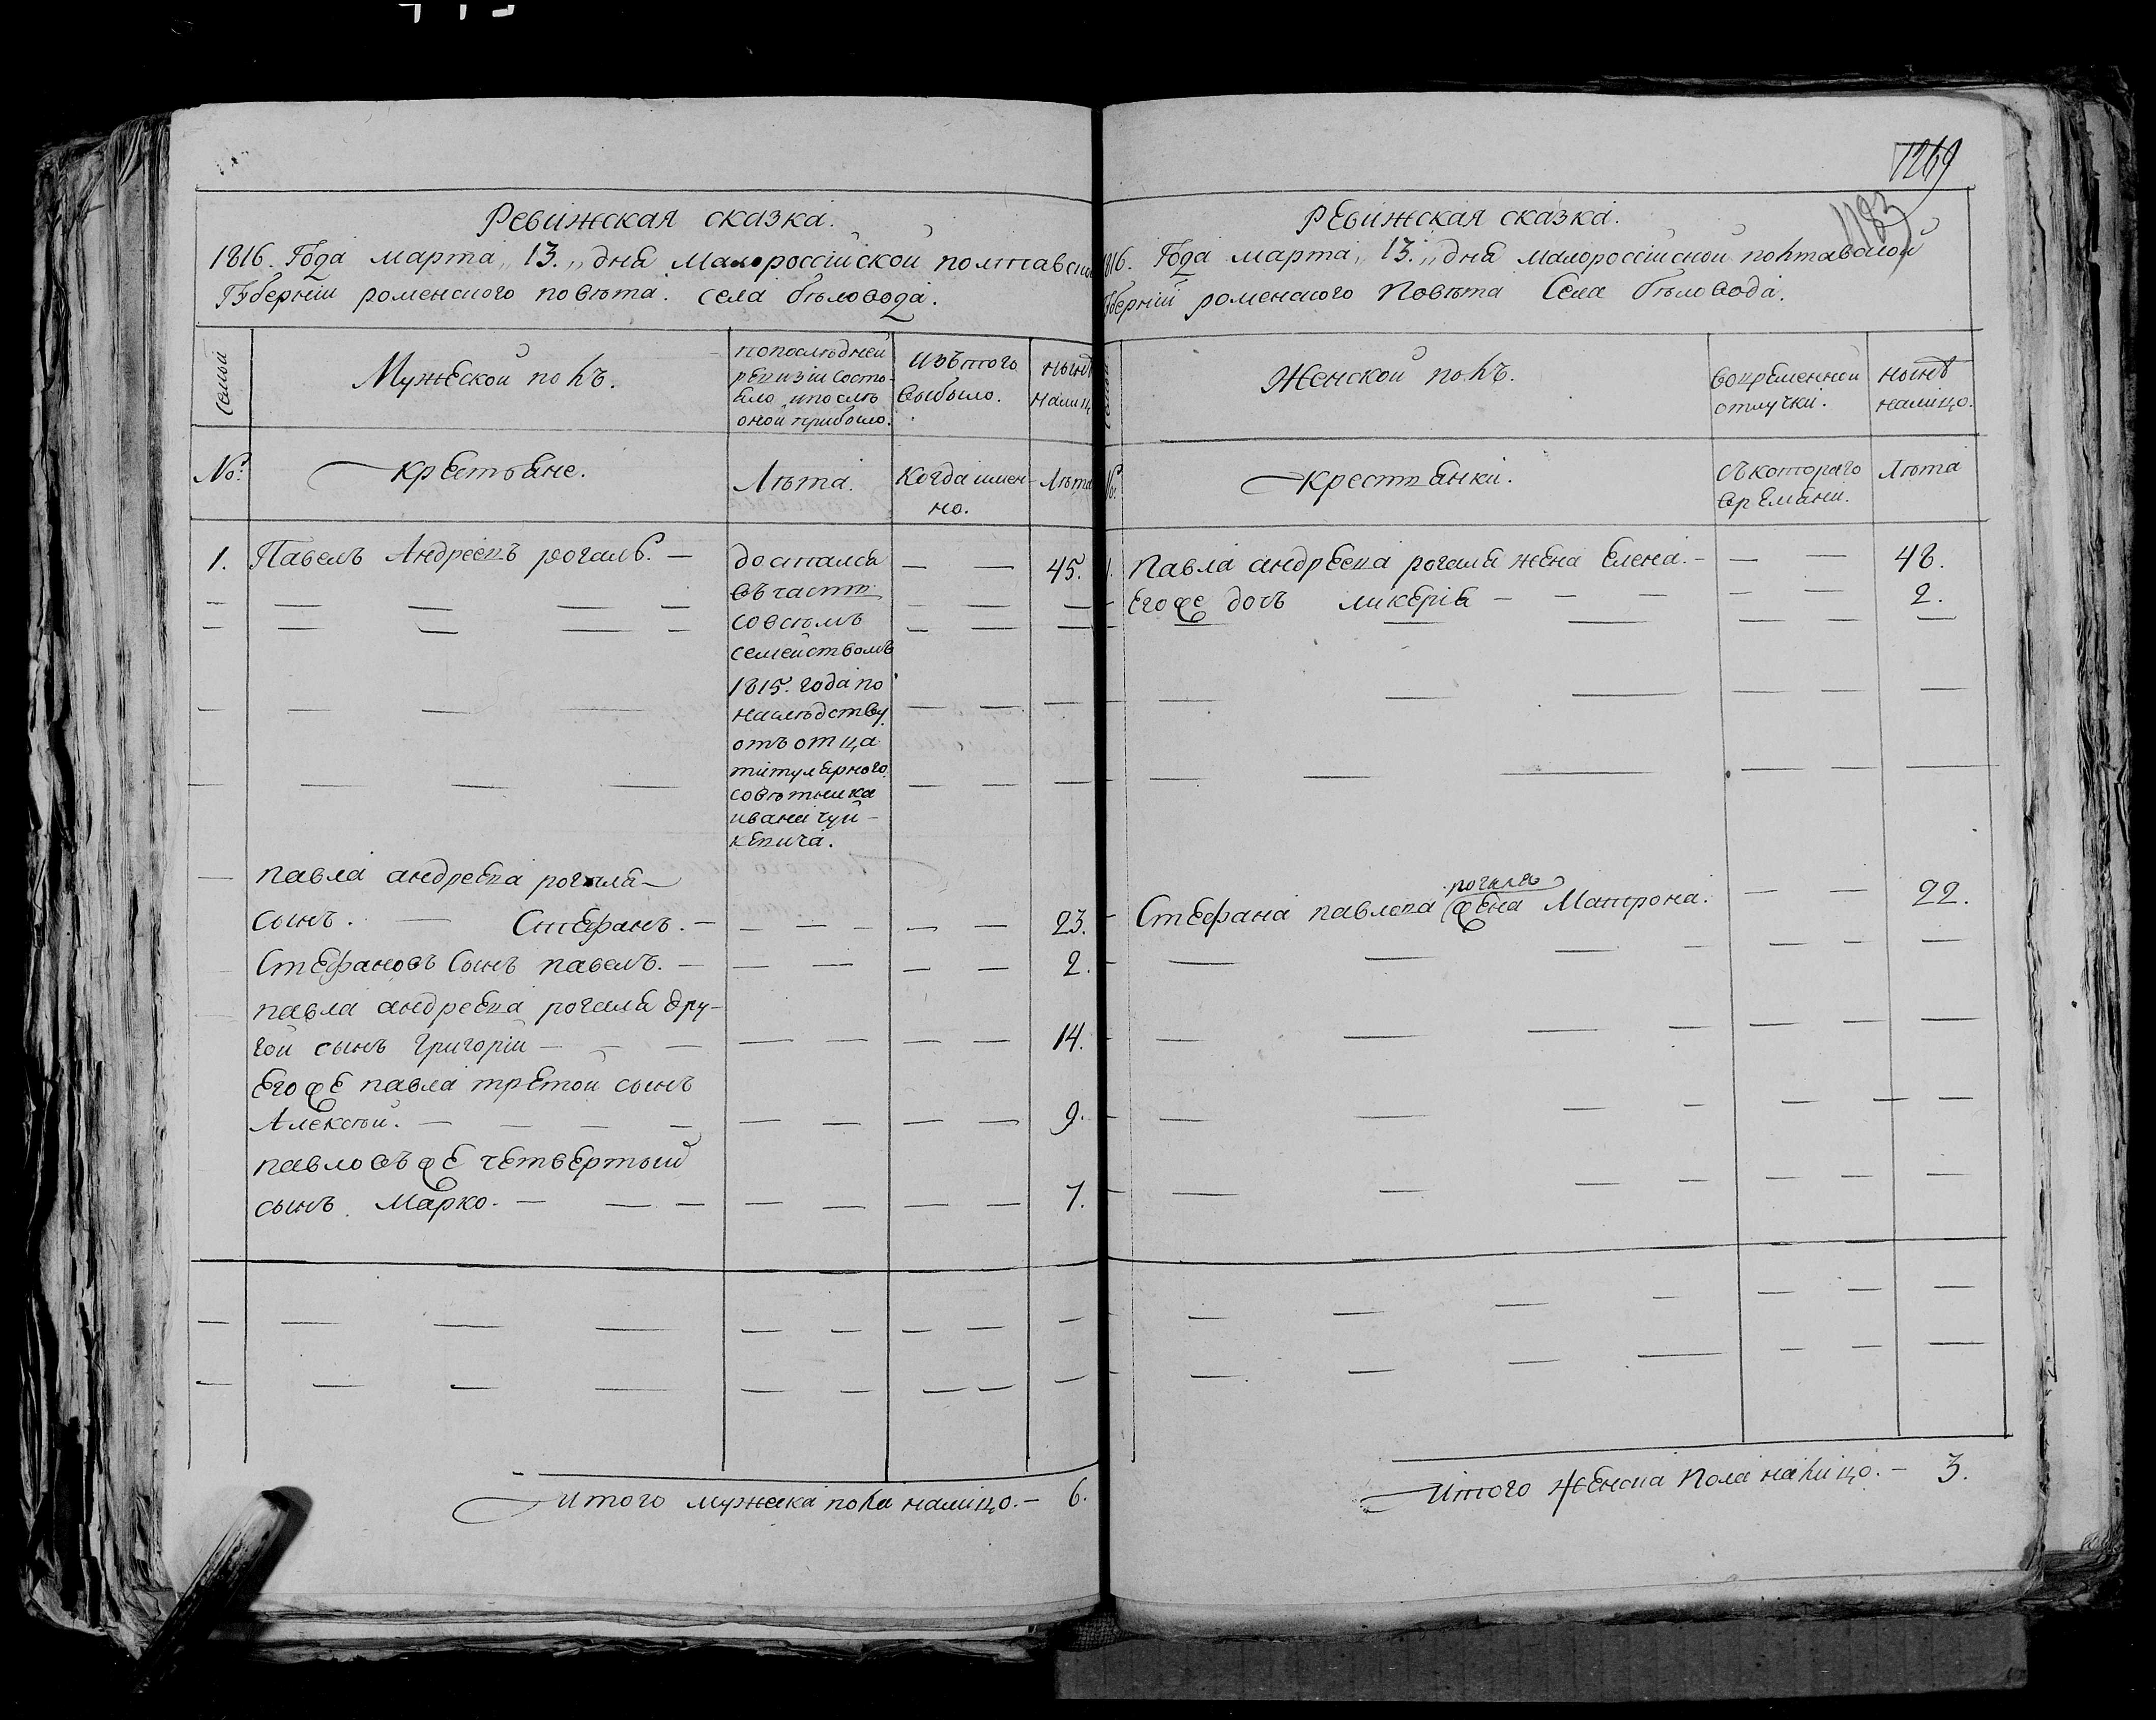 Ревижская сказка.
1816. Года марта „ 13. „ дня Малороссійской полтавской
Губерніи роменского повѣта. села бѣловода.
Семьи
Мужеской полъ.
попослѣдней
ревизіи состо-
яло ипослѣ
оной прибыло.
Изътого
выбыло.
нынѣ
налицо
№:
крестьяне.
Лѣта.
Когда имен-
но.
Лѣта
1. Павелъ Андреевъ рогаль. — 45.
достался
въ часть
совсѣмъ
семействомъ
1815. года по
наслѣдству
отъ отца
титулярного
совѣтника
ивана чуй-
кевича.
павла андреева рогаля
сынъ. — Стефанъ. — 23.
Стефановъ Сынъ павелъ. — 2.
павла андреева рогаля дру-
гой сынъ григорій — 14.
Его же павла третой сынъ
Алексѣй. — 9.
павловъ же четвертый
сынъ Марко. — 7.
итого мужска пола налицо. — 6.
1269
1183
Ревижская сказка.
1816. Года марта „ 13. „ дня малороссійской полтавской
Губерніи роменского Повѣта Села бѣловода.
Женской полъ.
вовременной
отлучки.
нынѣ
налицо.
№:
крестьянки.
съкотораго
времяни.
Лѣта
1. Павла андреева рогаля жена Елена. — 48.
Его же дочъ ликерія — 2.
рогаля
Стефана павлова жена Матрона. — 22.
итого женска Пола налицо. — 3.